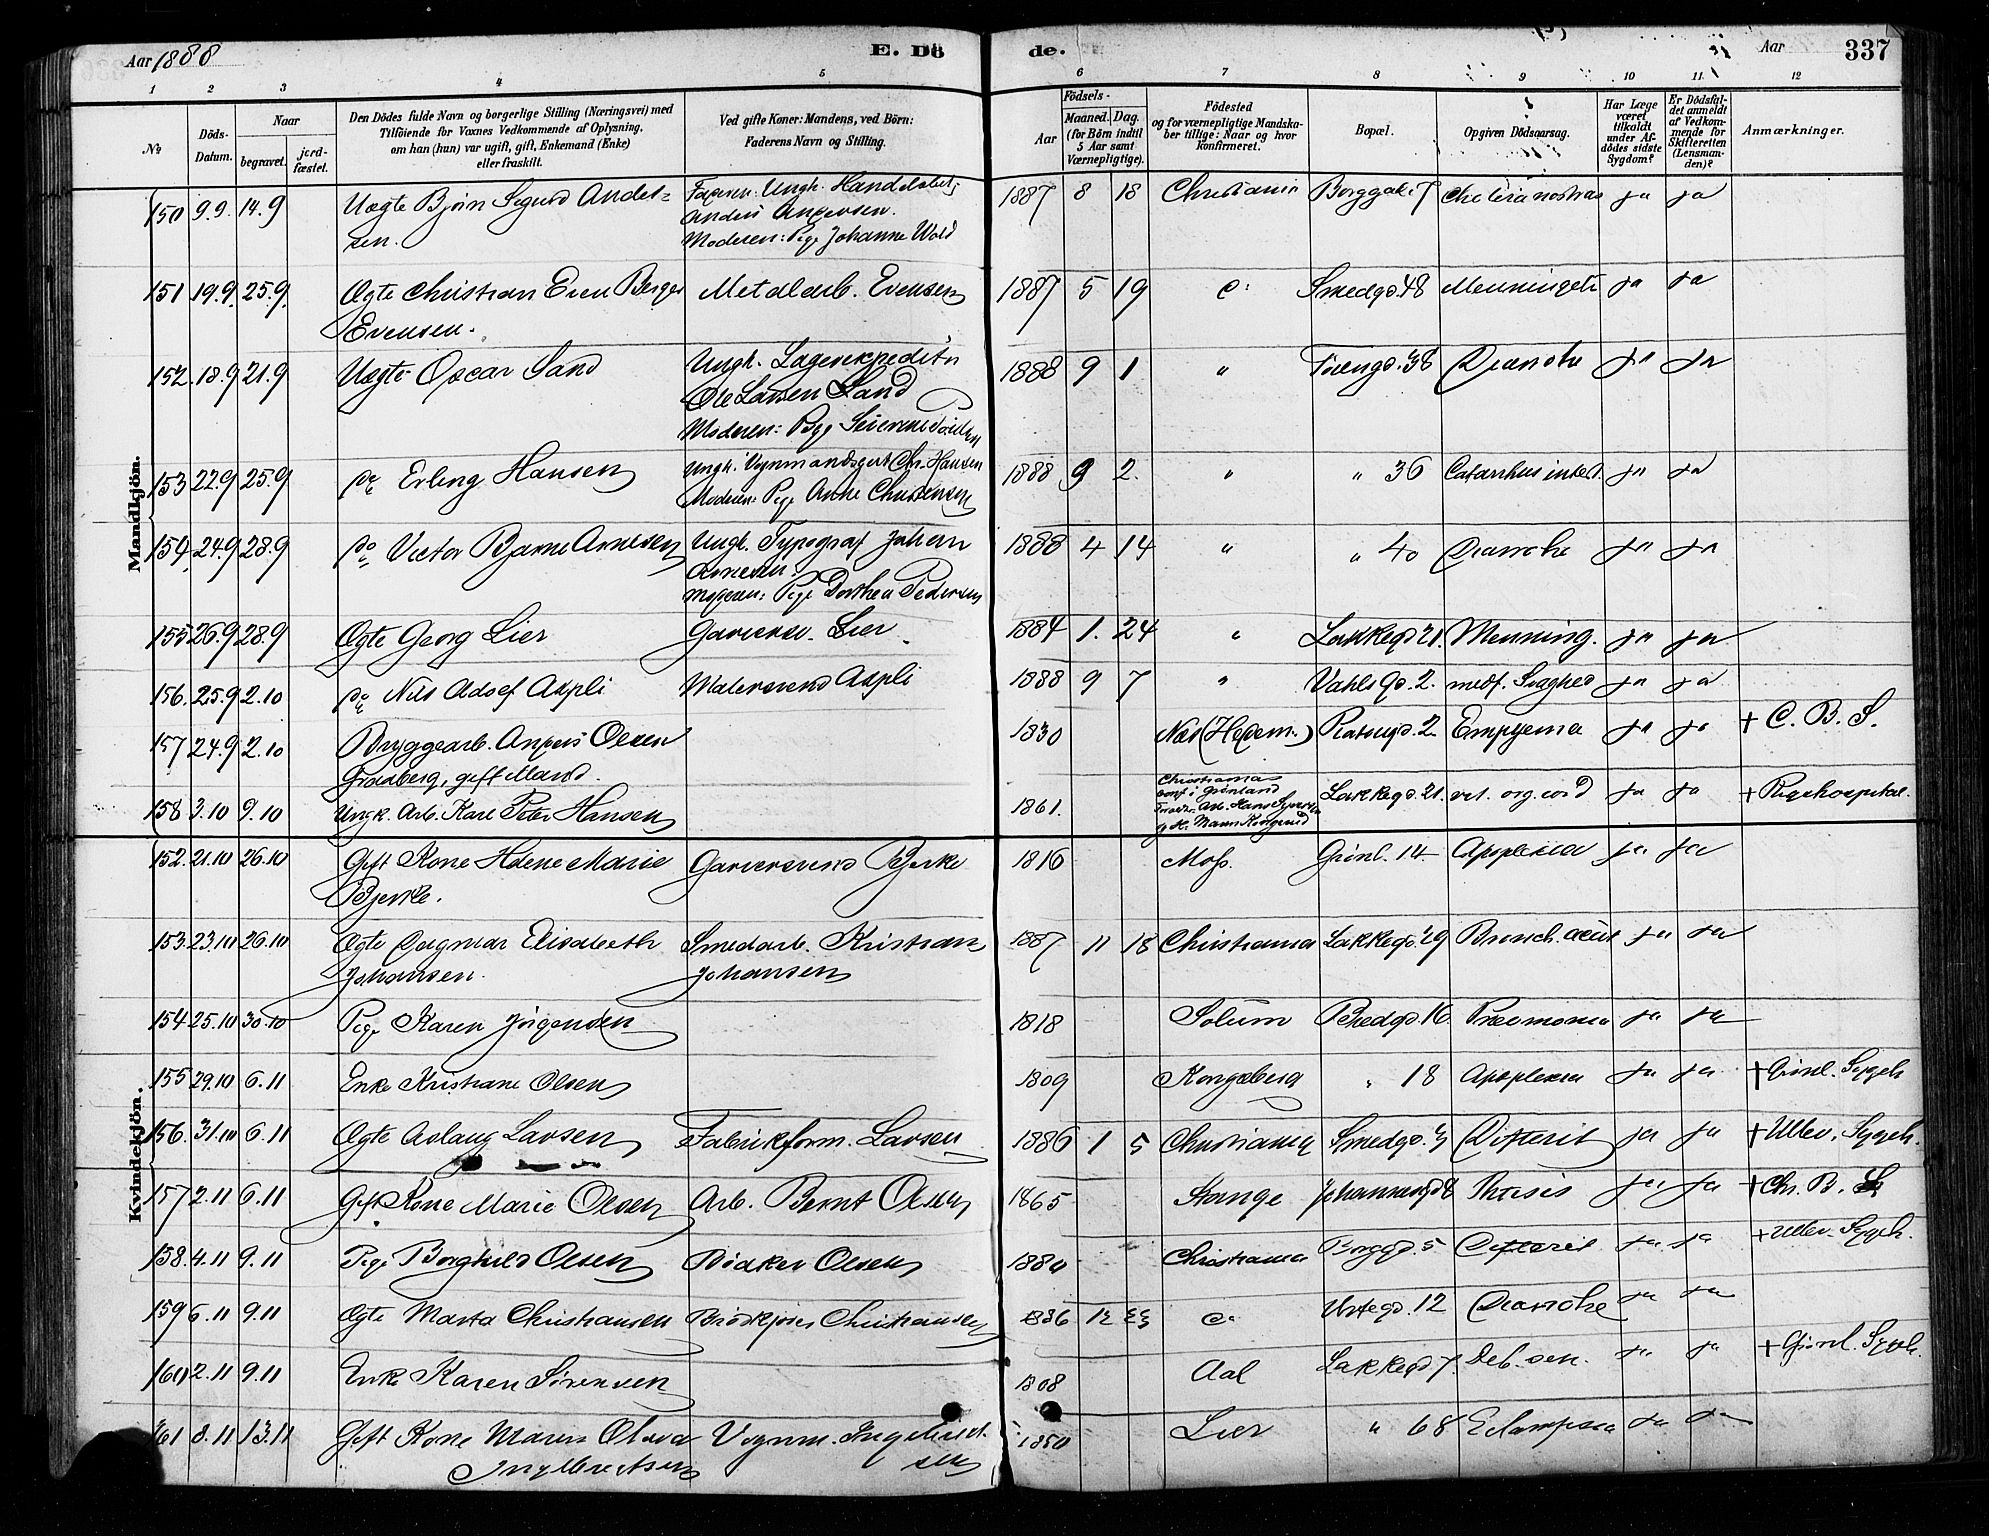 Aar 1888
E. Dö
de.
Aar
337
1 2 3 4 5 6 7 8 9 10 11 12
No
Döds-Datum.
Naar
begravet. jord-fæstet.
Den Dödes fulde Navn og borgerlige Stilling (Næringsvei) med
Tilföiende for Voxnes Vedkommende af Oplysning,
om han (hun) var ugift, gift, Enkemand (Enke)
eller fraskilt.
Ved gifte Koner: Mandens, ved Börn:
Faderens Navn og Stilling.
Aar
Födsels-
Maaned. Dag.
(for Börn indtil
5 Aar samt
Værnepligtige).
Födested
og for værnepligtige Mandska-
ber tillige: Naar og hvor
konfirmeret.
Bopæl.
Opgiven Dödsaarsag.
Har Læge
været
tilkaldt
under Af-
dödes sidste
Sygdom?
Er Dödsfal-
det anmeldt
af Vedkom-
mende for
Skifteretten
(Lensman-
den)?
Anmærkninger.
Mandkjön.
150 9.9. 14.9 Uægte Bjørn Sigurd Ander- Ungk. Handelsbetj. 1887 8 18 Christiania Borggade 7 Cholera nostras ja ja
sen. Anders Andersen.
Moderen: Pige Johanne Wold
151 19.9. 25.9. Ægte Christian Even Berger Metalarb. Evensen 1887 5 19 Smedgd. 48 ja ja
Evensen.
152. 18.9 21.9 Uægte Oscar Sand Ungk. Lagerexpeditør 1888 9 1 " 38 Diarrohe ja ja
Ole Larsen Sand
Moderen:
153 22.9 25.9 Erling Hansen Ungk. Vognmandsgut Chr. Hansen 1888 9 2. " " 36 Catarrhus intest. ja ja
Moderen: Pige Anne Christensen
154 24.9 28.9 Victor Bjarne Arnesen Ungk. Typograf Johan 1888 4 14 " " 40 Diarrohe ja ja
Arnesen.
Moderen: Pige Dorthea Pedersen
155 26.9 28.9 Ægte Georg Lier Lier 1884 1. 24 " Lakkegd. 21. Menning. ja ja
156. 25.9 2.10 Nils Adolf Aspli Malersvend Aspli 1888 9 7 " Vahls Gd. 2. medf. Svaghed ja ja
157 24.9 2.10 Bryggearb. Anders Olsen 1830 Næs (Hedem.) 2 Empyema ja ja + C. B. S.
Graaberg, gift Mand.
158 3.10 9.10 Ungk. Arb. Karl Peter Hansen 1861. Christiania Lakkegd. 21. vit. org. cord ja ja + Rigshospital.
conf. i Grønland
Kvindekjön.
152. 21.10 26.10 Gift Kone Helene Marie Garversvend Bjerke 1816 Moss. Grønl. 14. Apoplexia ja ja
Bjerke.
153. 23.10 26.10 Ægte Dagmar Elisabeth Smedarb. Kristian 1887 11 18 Christiania Lakkegd. 29 Bronch. acut ja ja
Johansen. Johansen
154 25.10 30.10 Pige Karen Jörgensen 1818 Solum Bredgd. 16. Pneumonia ja ja
155 29.10 6.11 Enke Kristiane Olsen 1809 Kongsberg " 18 Apoplexia ja ja + Grönl. Sygeh
156. 31.10 6.11 Ægte Aslaug Larsen Fabrikform. Larsen 1886 1 5 Christiania Smedgd. Difterit ja ja + Ullev. Sygeh.
157 2.11 6.11 Gift Kone Marie Olsen Arb. Bernt Olsen 1865 Stange Johannesgd. 8 Phtisis ja ja + Chr. B. S
158. 4.11 9.11 Pige Borghild Olsen Bödker Olsen 1880 Christiania Borggd. 5 Difterit ja ja + Ullev. Sygeh.
159 6.11 9.11 Ægte Marta Christiansen Brödkjører Christiansen 1886 12 Urtegd. 12 Diarrohe ja ja
160 2.11 9.11 Enke Karen Sörensen 1808 Aal Lakkegd. 7. Deb. sen. ja ja + Grönl. Sygeh.
161 8.11 13.11 Gift Kone Maren Olava Vognm. Ingebret- 1850 Lier " 68 Eclampsia ja ja
Ingebretsen sen